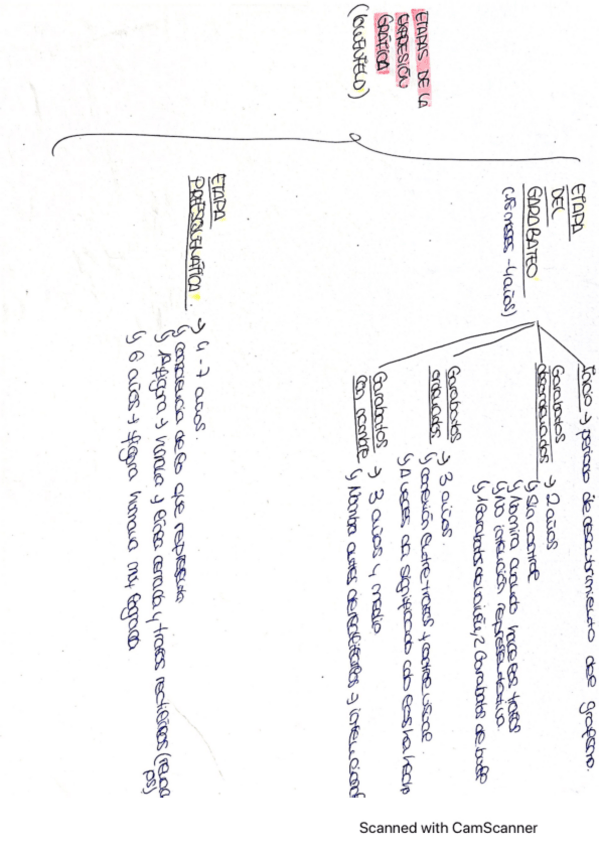 ETAPAS DE LA
EXPRESIÓN
GRÁFICA
(LOWENFELD)
ETAPA
DEL
GARABATEO
(18 meses - 4 años)
Inicio → periodo de descubrimiento del grafismo.
Garabatos → 2 años
desordenados
↳ Sin control
↳ No mira cuando hace los trazos
↳ No intención representativa
↳ 1 Garabatos de 2 Garabatos de
Garabatos → 3 años.
↳ conexión entre trazos y control visual.
↳ A veces da significado
Garabatos → 3 años y medio
con nombre
↳ Nombra antes de realizarlos → intencional
ETAPA
PREESQUEMÁTICA. → 4 - 7 años.
↳ conciencia de lo que representa
↳ 1ª figura → humana y trazos rectilíneos
↳ 6 años → figura humana muy lograda
Scanned with CamScanner